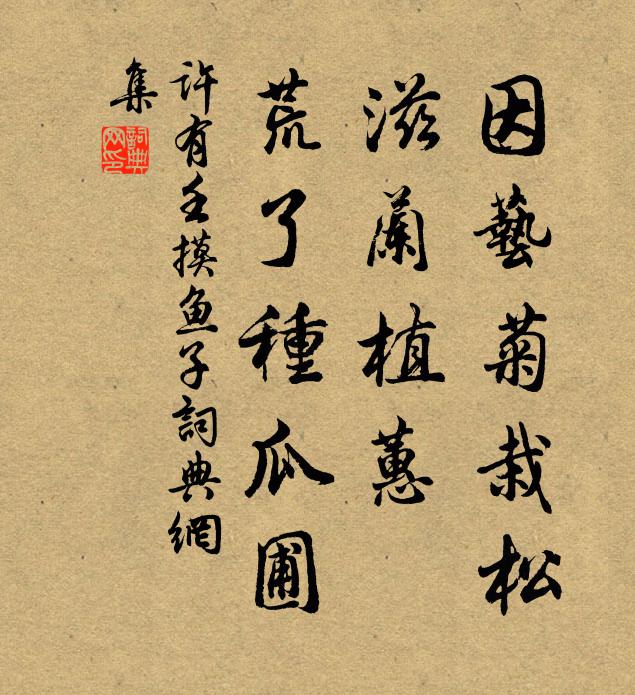 因藝菊栽松
滋蘭植蕙
荒了種瓜圃
許有壬摸魚子詞典網
集
詞典
网印